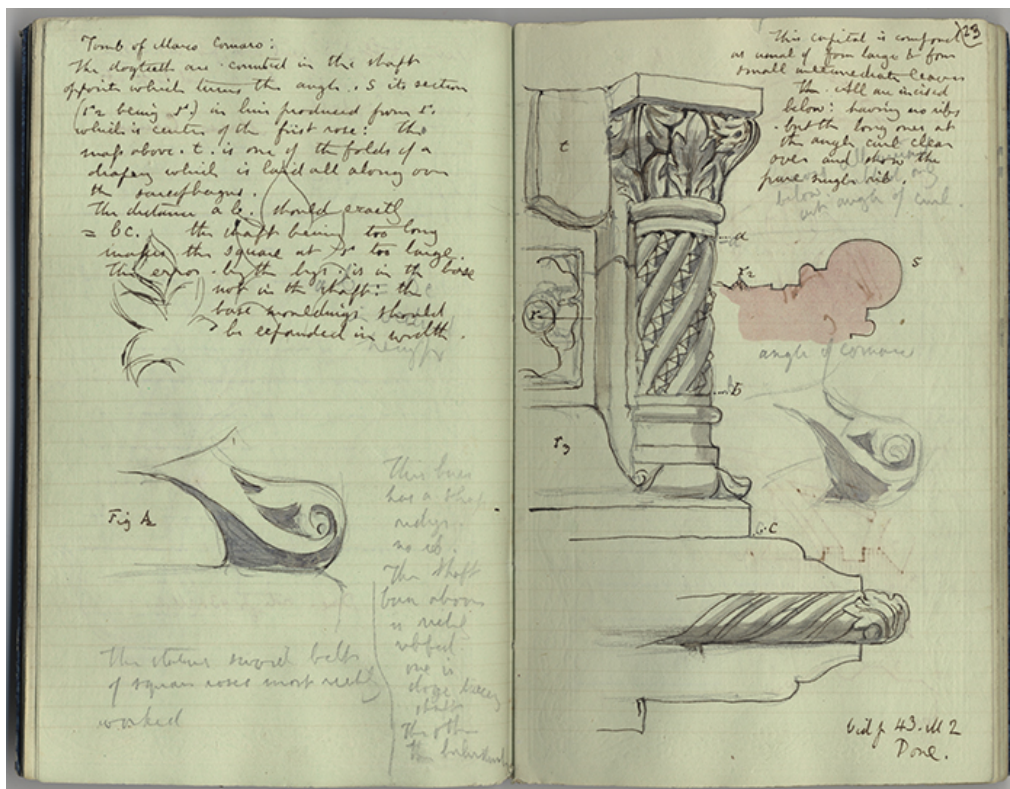 Tomb of Marco Cornaro:
The dogteeth are counted in the shaft
opposite which turns the angle. S its section
(r2 being r.) in line produced from r.
which is centre of the first rose: the
mass above. t. is one of the folds of a
drapery which is laid all along over
the sarcophagus.
The distance a b. should exactly
= bc. the shaft being too long
makes the square at r too large.
The error is in the base
not in the shaft: the
base mouldings should
be expanded in width.
Fig 2
This base
has a sharp
no rib.
The shaft
base above
is
ribbed.
one is
doge
shaft
The other
the
The statues sword belt
of square roses most richly
worked
23
This capital is composed
as usual of four large & four
small intermediate leaves
the. All are incised
below: having no ribs
but the long ones at
the angle curl clear
over and show the
pure single rib.
below
angle of curl.
t
a
r2
S
r
angle of cornaro
b
r3
b. c
Vid p 43. M 2
Done.